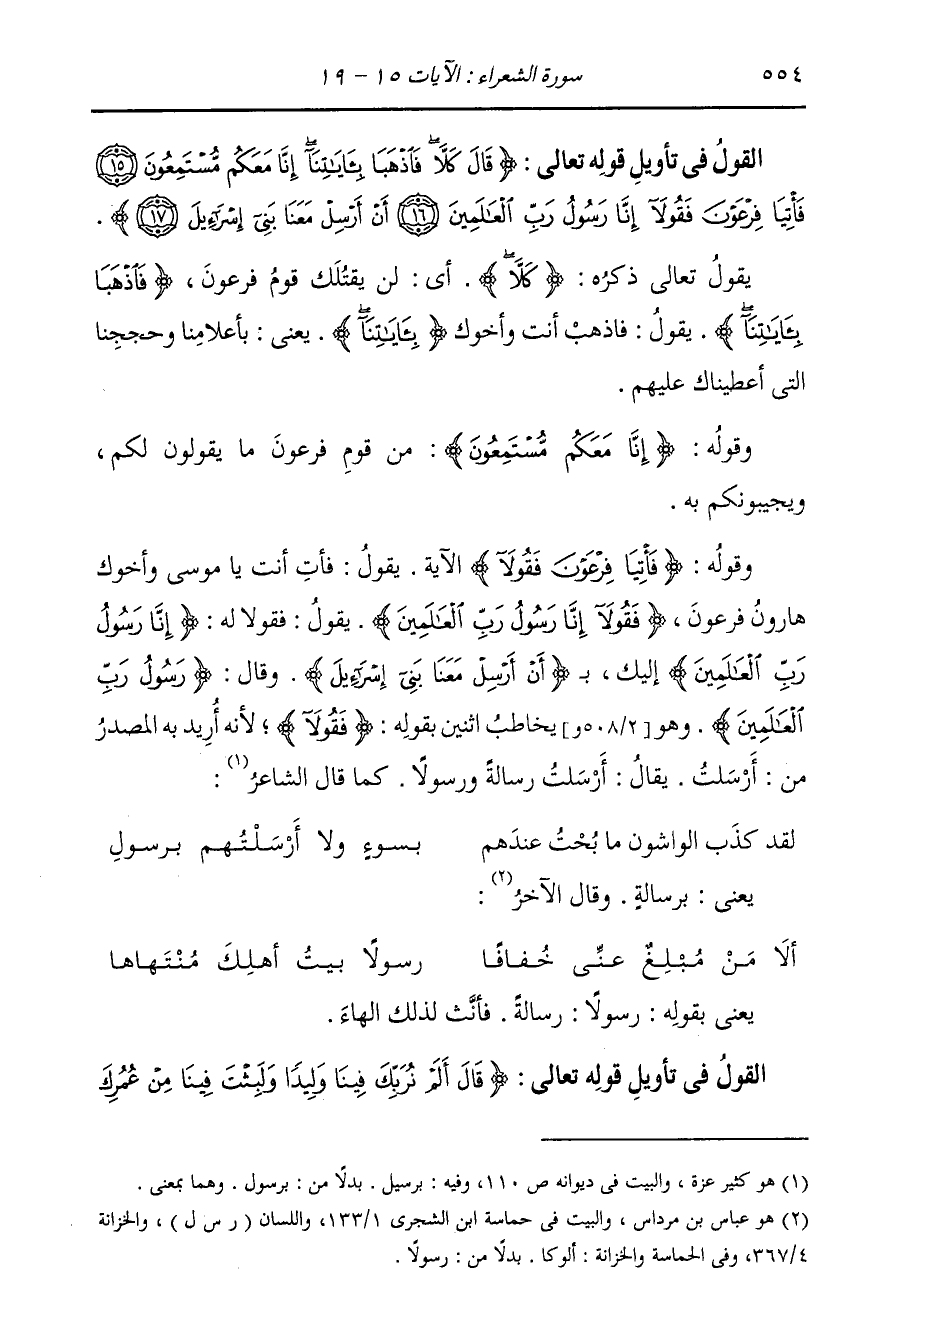 ٥٥٤ سورة الشعراء : الآيات ١٥ - ١٩
القولُ فى تأويلِ قولِه تعالى : ﴿ قَالَ كَلَّاۖ فَٱذْهَبَا بِـَٔايَـٰتِنَآۖ إِنَّا مَعَكُم مُّسْتَمِعُونَ ⑮
فَأْتِيَا فِرْعَوْنَ فَقُولَآ إِنَّا رَسُولُ رَبِّ ٱلْعَـٰلَمِينَ ⑯ أَنْ أَرْسِلْ مَعَنَا بَنِىٓ إِسْرَٰٓءِيلَ ⑰ ﴾ .
يقولُ تعالى ذكرُه : ﴿ كَلَّاۖ ﴾ . أى : لن يقتُلَك قومُ فرعونَ ، ﴿ فَٱذْهَبَا
بِـَٔايَـٰتِنَآۖ ﴾ . يقولُ : فاذهبْ أنت وأخوك ﴿ بِـَٔايَـٰتِنَآۖ ﴾ . يعنى : بأعلامِنا وحججِنا
التى أعطيناك عليهم .
وقولُه : ﴿ إِنَّا مَعَكُم مُّسْتَمِعُونَ ﴾ : من قومِ فرعونَ ما يقولون لكم ،
ويجيبونكم به .
وقولُه : ﴿ فَأْتِيَا فِرْعَوْنَ فَقُولَآ ﴾ الآية . يقولُ : فأتِ أنت يا موسى وأخوك
هارونُ فرعونَ ، ﴿ فَقُولَآ إِنَّا رَسُولُ رَبِّ ٱلْعَـٰلَمِينَ ﴾ . يقولُ : فقولا له : ﴿ إِنَّا رَسُولُ
رَبِّ ٱلْعَـٰلَمِينَ ﴾ إليك ، بـ ﴿ أَنْ أَرْسِلْ مَعَنَا بَنِىٓ إِسْرَٰٓءِيلَ ﴾ . وقال : ﴿ رَسُولُ رَبِّ
ٱلْعَـٰلَمِينَ ﴾ . وهو [ ٥٠٨/٢و] يخاطبُ اثنين بقولِه : ﴿ فَقُولَآ ﴾ ؛ لأنه أُريد به المصدرُ
من : أَرْسَلتُ . يقالُ : أَرْسَلتُ رسالةً ورسولًا . كما قال الشاعرُ(١) :
لقد كذَب الواشون ما بُحْتُ عندَهم بسوءٍ ولا أَرْسَلْتُهم برسولِ
يعنى : برسالةٍ . وقال الآخرُ(٢) :
ألَا مَنْ مُبْلِغٌ عنِّى خُفافًا رسولًا بيتُ أهلِكَ مُنْتَهاها
يعنى بقولِه : رسولًا : رسالةً . فأنَّث لذلك الهاءَ .
القولُ فى تأويلِ قولِه تعالى : ﴿ قَالَ أَلَمْ نُرَبِّكَ فِينَا وَلِيدًا وَلَبِثْتَ فِينَا مِنْ عُمُرِكَ
(١) هو كثير عزة ، والبيت فى ديوانه ص ١١٠، وفيه : برسيل . بدلًا من : برسول . وهما بمعنى .
(٢) هو عباس بن مرداس ، والبيت فى حماسة ابن الشجرى ١٣٣/١، واللسان ( ر س ل ) ، والخزانة
٣٦٧/٤، وفى الحماسة والخزانة : ألوكا . بدلًا من : رسولًا .